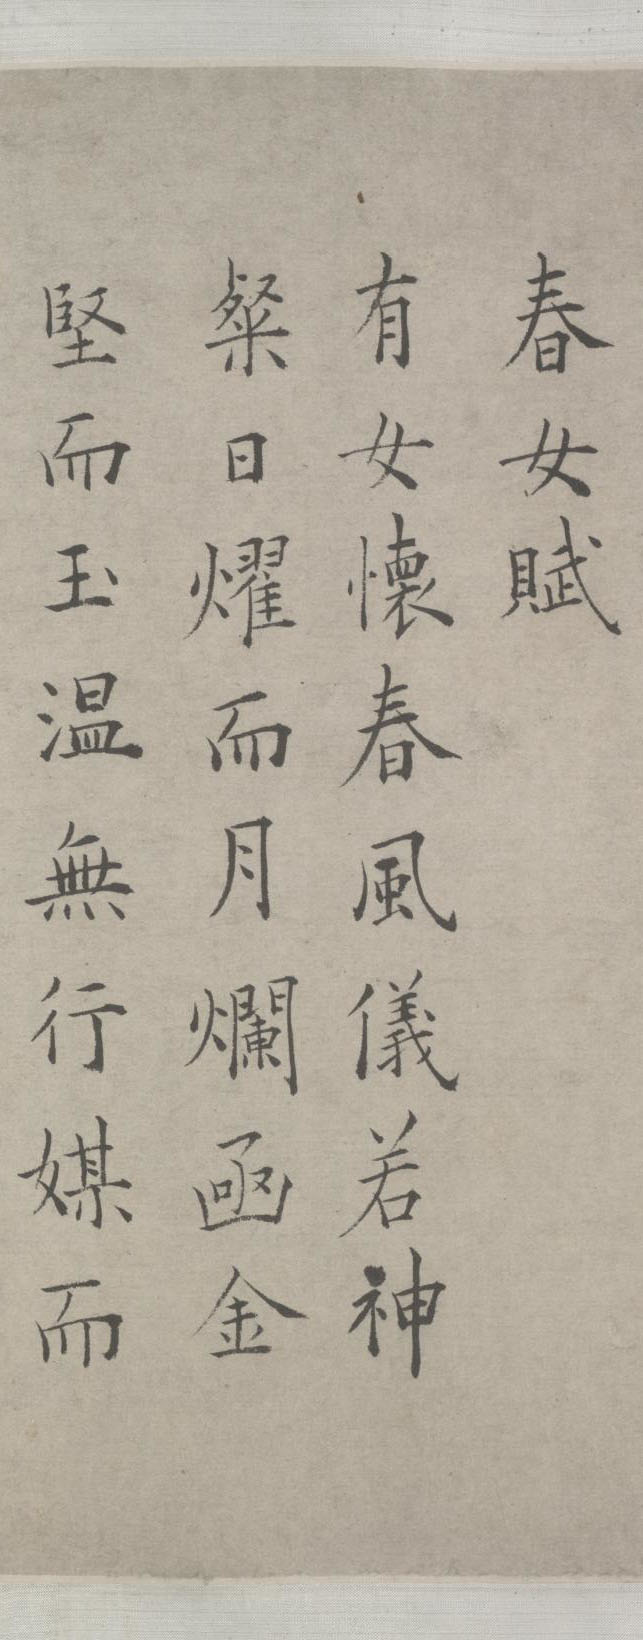 春女賦
有女懷春風儀若神
粲日燿而月爛函金
堅而玉溫無行媒而